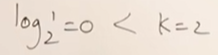 log₂¹=0 < k=2